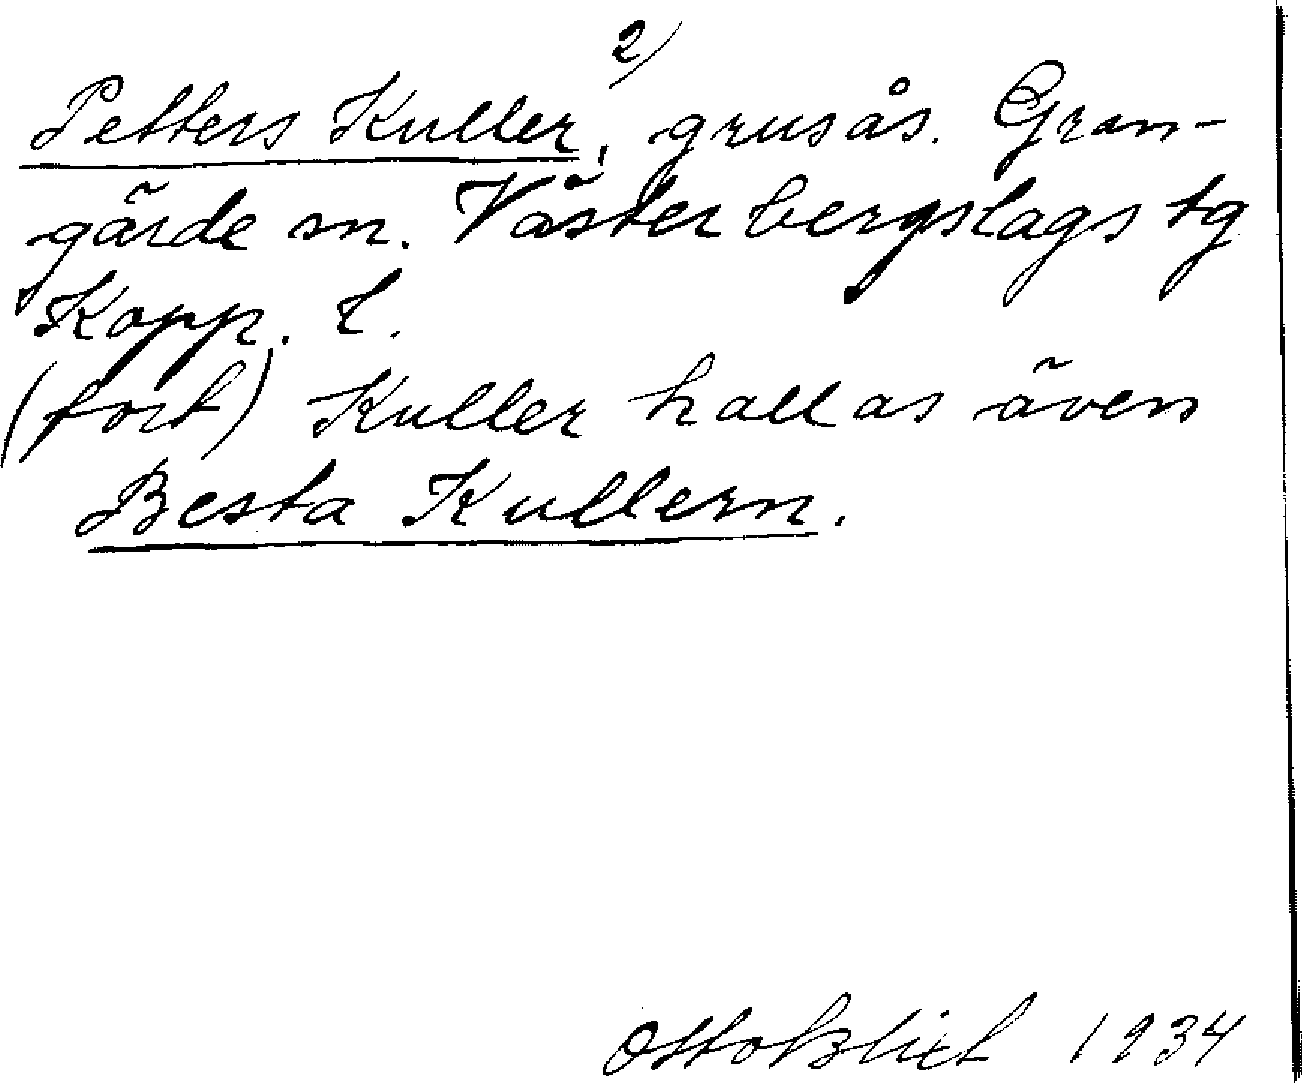 2)
Petters Kuller, grusås. Gran-
gärde sn. Västerbergslags tg
Kopp. l.
(fort) Kuller kallas även
Besta Kullern.
Otto Blixt 1934